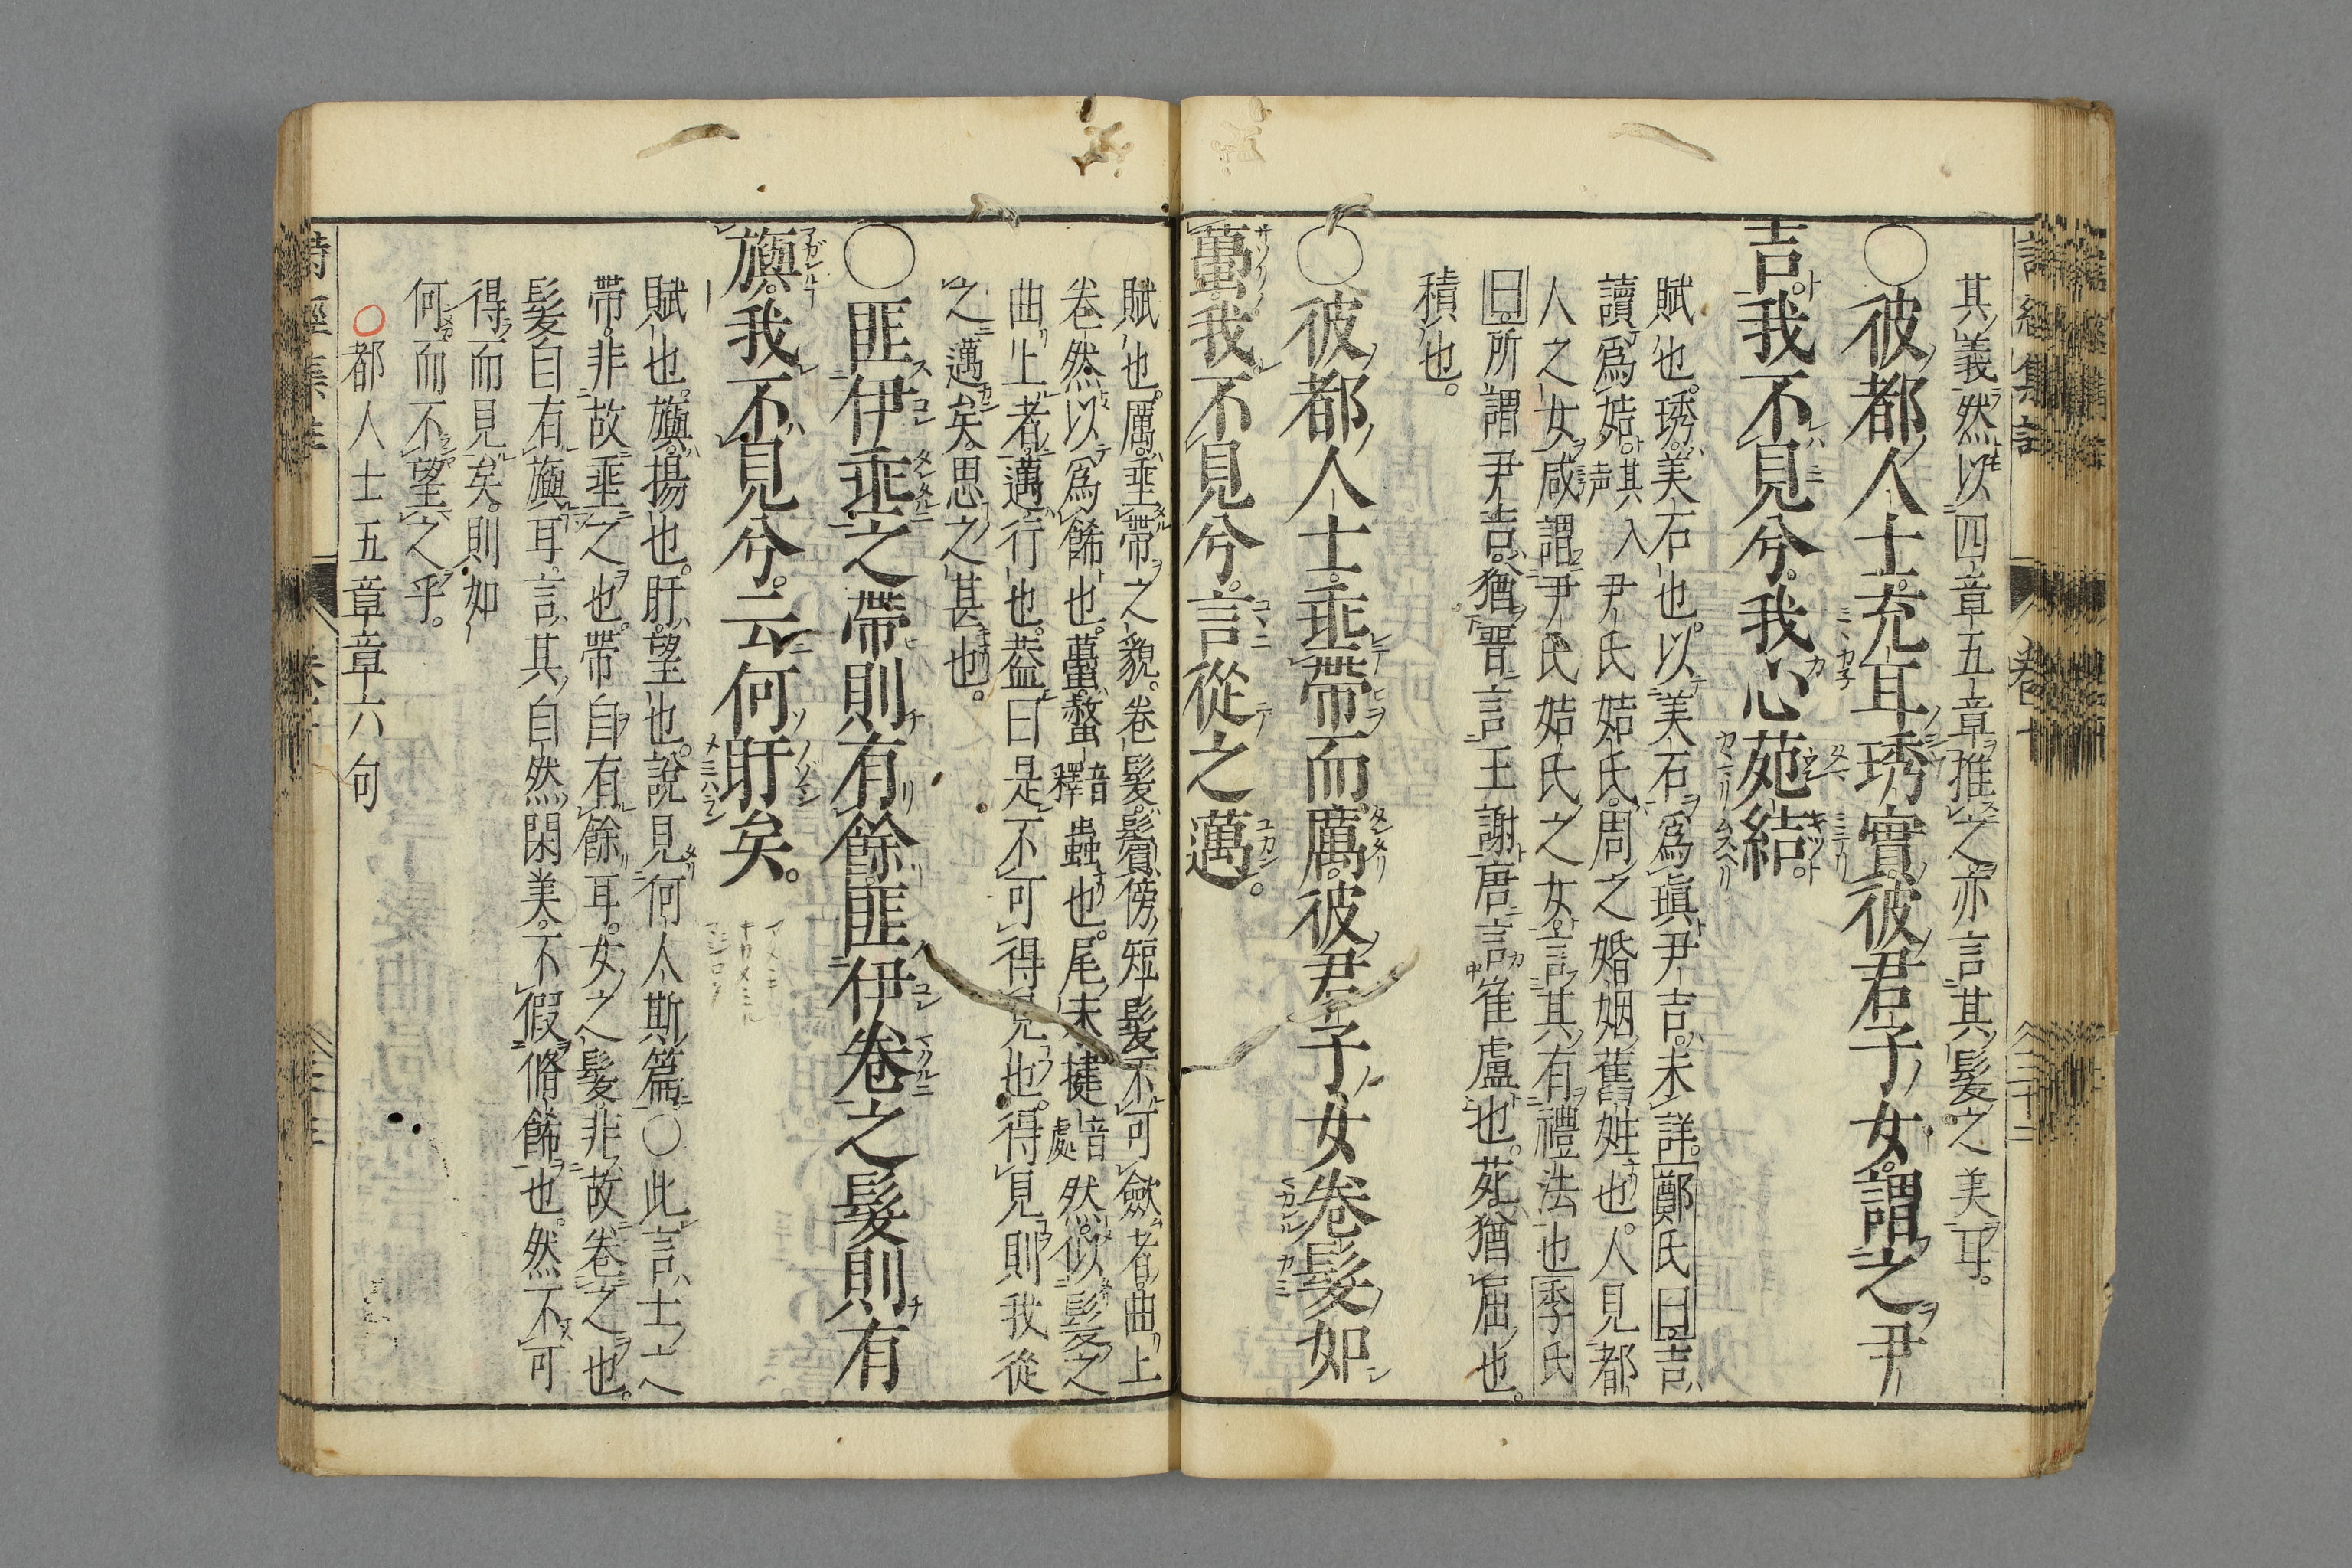 其義然以四章五章推之亦言其髮之美耳。
○彼都人士。充耳琇實。彼君子女。謂之尹
吉。我不見兮。我心苑結。
賦也。琇。美石也。以美石爲瑱。尹吉。未詳。鄭氏曰。吉。
讀爲姞。其入聲尹氏姞氏。周之婚姻舊姓也。人見都
人之女。咸謂尹氏姞氏之女。言其有禮法也季氏
曰。所謂尹吉。猶晋言王謝。唐言崔盧也。苑。猶屈也。
積也。
○彼都人士。垂帶而厲。彼君子女。卷髮如
蠆。我不見兮。言從之邁。
賦也。厲。垂帶之貌。卷髮。鬢傍短髮不可歛者。曲上
卷然以爲餙也。蠆。螫音釋蟲也。尾末揵音處然。似髮之
曲上者。邁。行也。葢曰是不可得見也。得見。則我從
之邁矣。思之甚也。
○匪伊垂之。帶則有餘。匪伊卷之。髮則有
旟。我不見兮。云何盱矣。
賦也。旟。揚也。盱。望也。說見何人斯篇○此言。士之
帶。非故垂之也。帶自有餘耳。女之髮非故卷之也。
髮自有旟耳。言其自然閑美。不假脩餙也。然不可
得而見矣。則如
何而不望之乎。
○都人士五章章六句